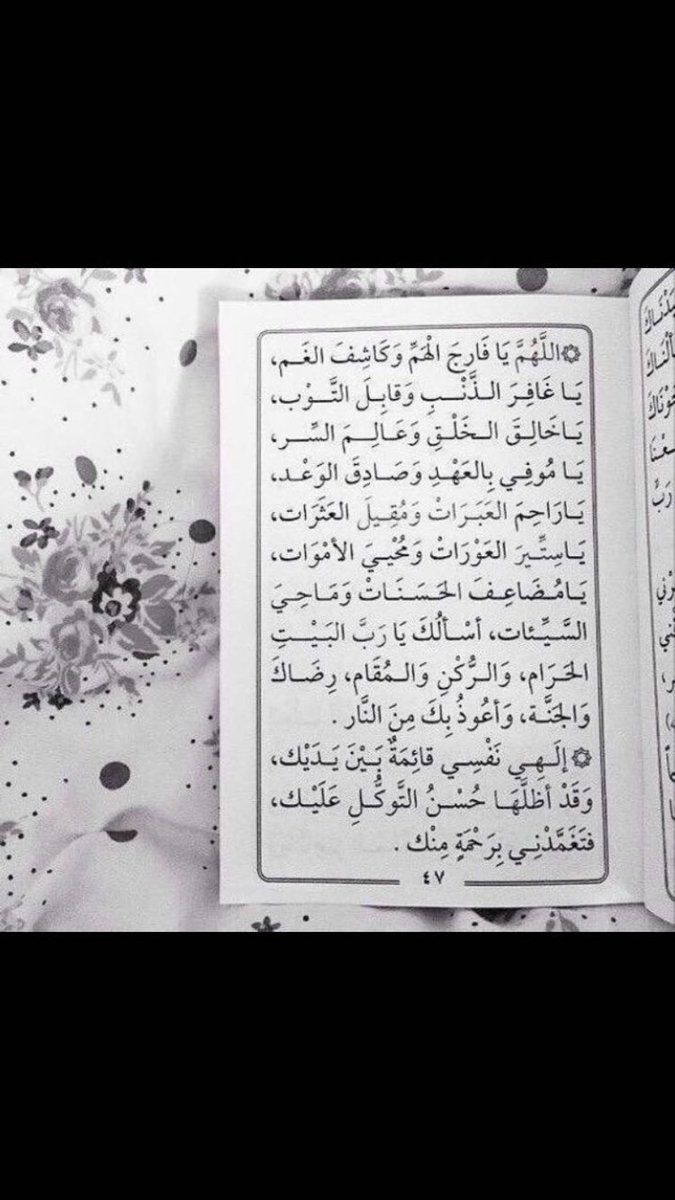 ۞ اللَّهُمَّ يَا فَارِجَ الْهَمِّ وَكَاشِفَ الغَـم،
يَـا غَافِـرَ الـذَّنْـبِ وَقابِـلَ التَّـوْب،
يَـاخَالِـقَ الـخَلْـقِ وَعَـالِـمَ السِّـر،
يَـا مُوفِـي بِالعَهْـدِ وَصَـادِقَ الوَعْـد،
يَـارَاحِـمَ العَبَـرَاتْ وَمُقِيـلَ العَثَرَات،
يَـاسِتِّيـرَ العَوْرَاتْ وَمُحْيـيَ الأمْوَات،
يَـامُضَاعِـفَ الحَسَنَـاتْ وَمَـاحِـيَ
السَّـيِّئات، أسْـألُكَ يَا رَبَّ البَـيْـتِ
الحَرَام، وَالـرُّكْنِ وَالـمُقَام، رِضَـاكَ
وَالجَنَّـة، وَأعُوذُ بِكَ مِنَ النَّار .
۞ إلَـهِـي نَفْسِـي قائِمَةٌ بَيْنَ يَـدَيْك،
وَقَدْ أظَلَّهَـا حُسْـنُ التَّوكّـلِ عَلَيْـك،
فتَغَمَّدْنِـي بِرَحْمَةٍ مِنْك .
٤٧